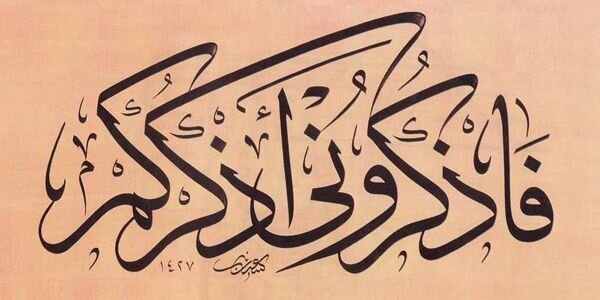 فَاذْكُرُونِي أَذْكُرْكُمْ
١٤٢٧